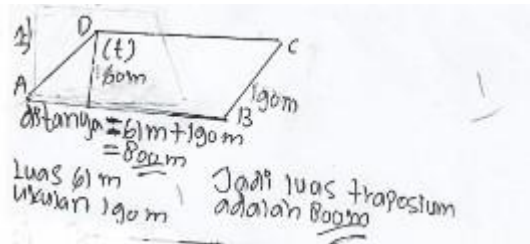 1)
D
C
(t)
60m
A
190m
B
=61m+190m
=800m
Luas 61 m
ukuran 190 m
Jadi luas traposium
adalah 800m